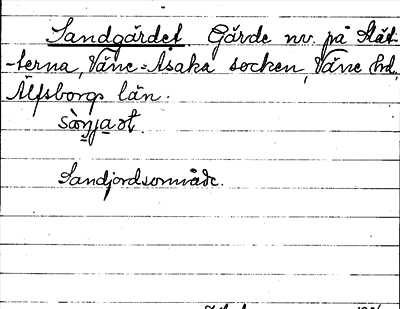 Sandgärdet. Gärde nv. på Slät-
-terna, Väne-Åsaka socken, Väne hd,
Älfsborgs län.
Sandjordsområde.